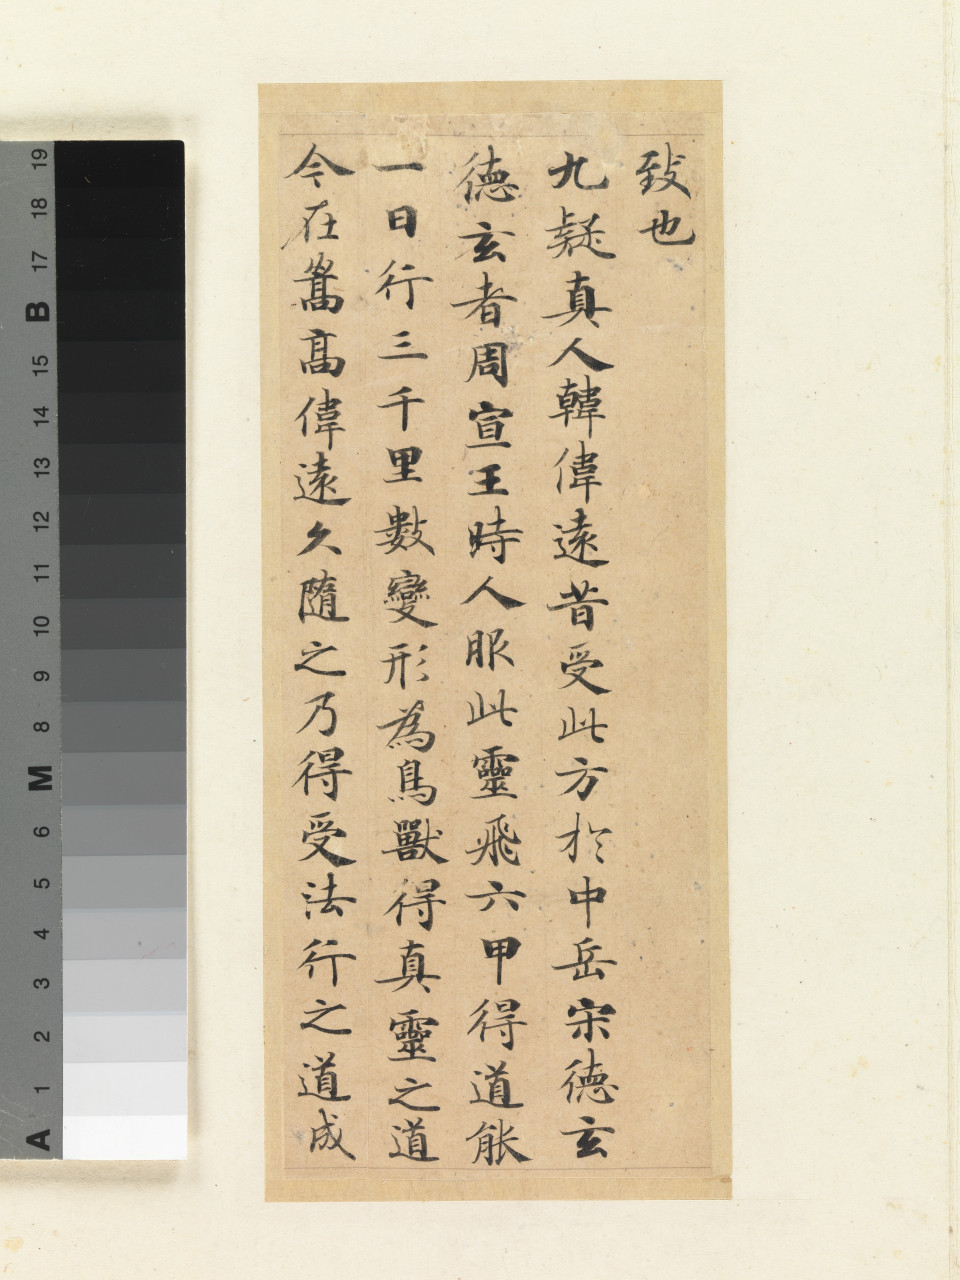 致也
九疑真人韓偉遠昔受此方於中岳宋德玄
德玄者周宣王時人服此靈飛六甲得道能
一日行三千里數變形為鳥獸得真靈之道
今在嵩高偉遠久隨之乃得受法行之道成
19
18
17
B
15
14
13
12
11
10
9
8
M
6
5
4
3
2
1
A